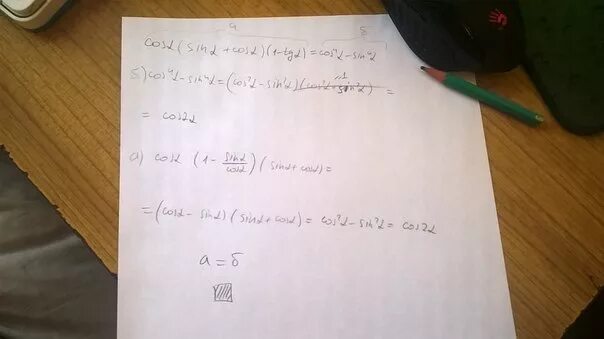 а б
cosα (sinα + cosα)(1 - tgα) = cos⁴α - sin⁴α
б) cos⁴α - sin⁴α = (cos²α - sin²α)(cos²α + sin²α) =
1
= cos2α
а) cosα (1 - sinα/cosα)(sinα + cosα) =
= (cosα - sinα)(sinα + cosα) = cos²α - sin²α = cos2α
а = б